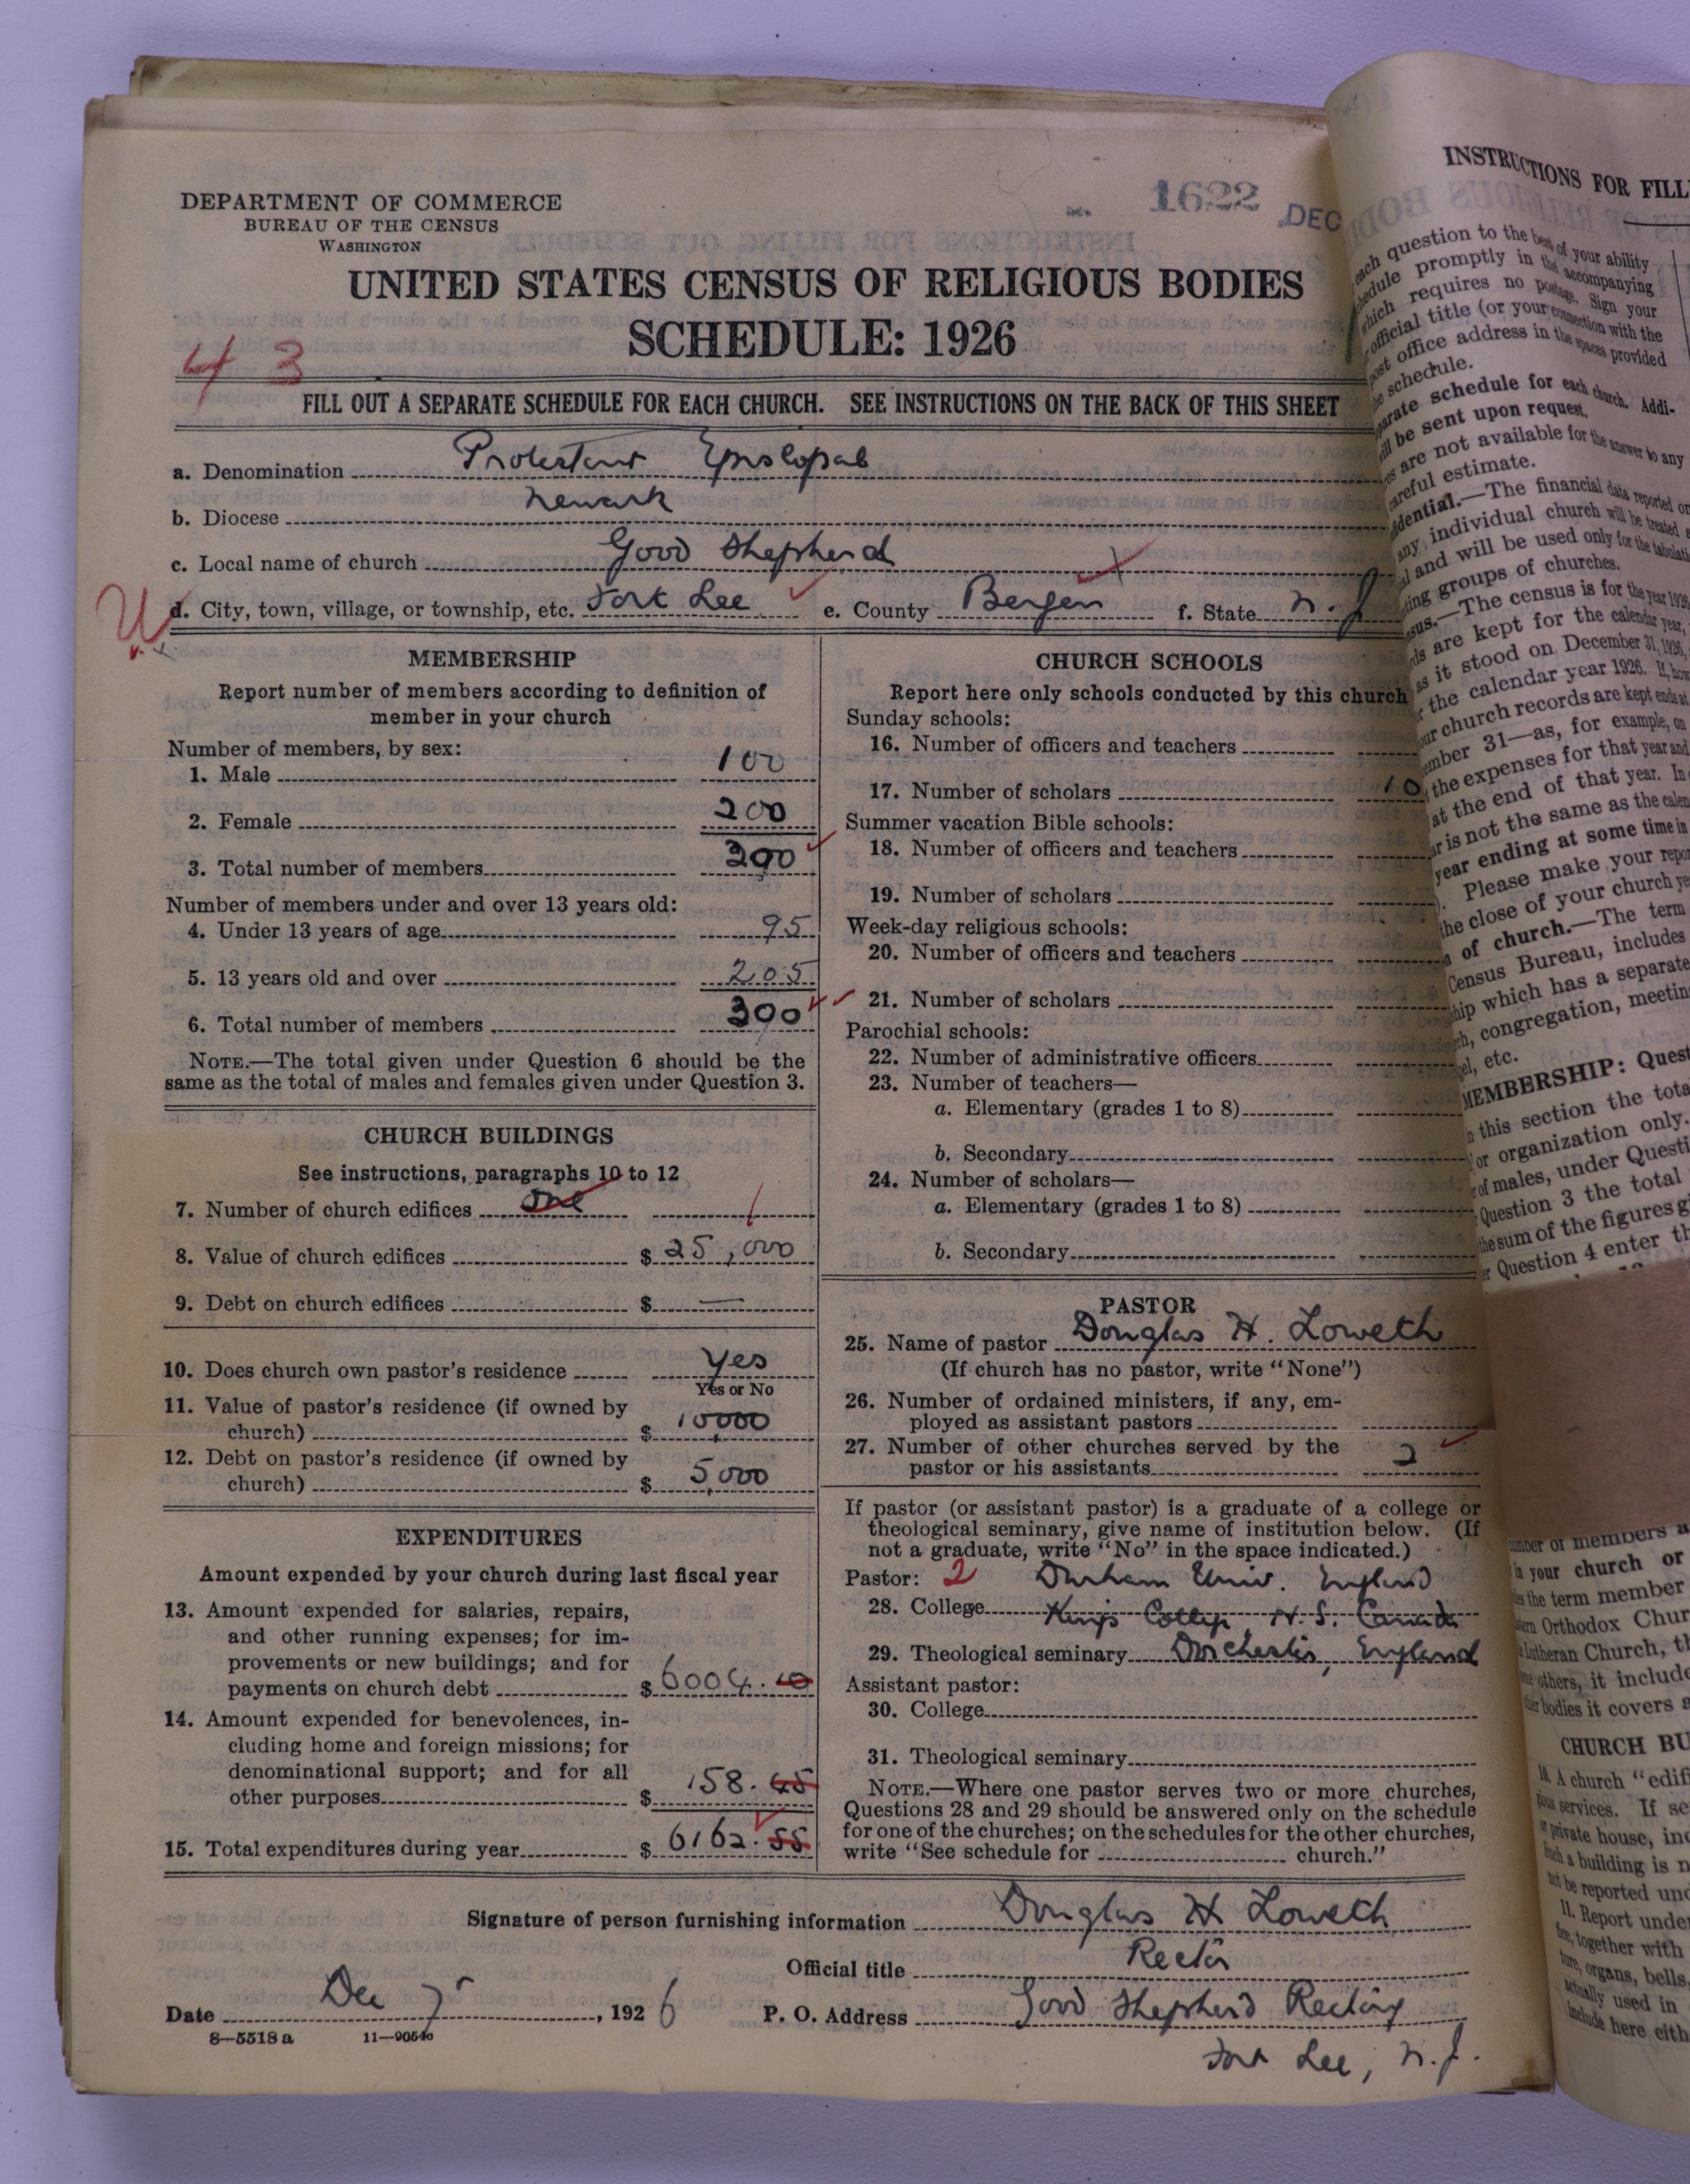 DEPARTMENT OF COMMERCE
BUREAU OF THE CENSUS
WASHINGTON
1622 DEC
UNITED STATES CENSUS OF RELIGIOUS BODIES
SCHEDULE: 1926
4 3
FILL OUT A SEPARATE SCHEDULE FOR EACH CHURCH. SEE INSTRUCTIONS ON THE BACK OF THIS SHEET
a. Denomination Protestant Episcopal
b. Diocese Newark
c. Local name of church Good Shepherd
d. City, town, village, or township, etc. Fort Lee e. County Bergen f. State N. J
MEMBERSHIP
Report number of members according to definition of
member in your church
Number of members, by sex:
1. Male 100
2. Female 200
3. Total number of members 300
Number of members under and over 13 years old:
4. Under 13 years of age 95
5. 13 years old and over 205
6. Total number of members 300
NOTE.—The total given under Question 6 should be the
same as the total of males and females given under Question 3.
CHURCH BUILDINGS
See instructions, paragraphs 10 to 12
7. Number of church edifices one 1
8. Value of church edifices $ 25,000
9. Debt on church edifices $ —
10. Does church own pastor's residence Yes
Yes or No
11. Value of pastor's residence (if owned by
church) $ 10000
12. Debt on pastor's residence (if owned by
church) $ 5,000
EXPENDITURES
Amount expended by your church during last fiscal year
13. Amount expended for salaries, repairs,
and other running expenses; for im-
provements or new buildings; and for
payments on church debt $ 6004.10
14. Amount expended for benevolences, in-
cluding home and foreign missions; for
denominational support; and for all
other purposes $ 158.45
15. Total expenditures during year $ 6162.55
CHURCH SCHOOLS
Report here only schools conducted by this church
Sunday schools:
16. Number of officers and teachers
17. Number of scholars
Summer vacation Bible schools:
18. Number of officers and teachers
19. Number of scholars
Week-day religious schools:
20. Number of officers and teachers
21. Number of scholars
Parochial schools:
22. Number of administrative officers
23. Number of teachers—
a. Elementary (grades 1 to 8)
b. Secondary
24. Number of scholars—
a. Elementary (grades 1 to 8)
b. Secondary
PASTOR
25. Name of pastor Douglas H. Loweth
(If church has no pastor, write "None")
26. Number of ordained ministers, if any, em-
ployed as assistant pastors
27. Number of other churches served by the
pastor or his assistants 2
If pastor (or assistant pastor) is a graduate of a college or
theological seminary, give name of institution below. (If
not a graduate, write "No" in the space indicated.)
Pastor: 2 Durham Univ. England
28. College Kings College, N.S. Canada
29. Theological seminary Dorchester, England
Assistant pastor:
30. College
31. Theological seminary
NOTE.—Where one pastor serves two or more churches,
Questions 28 and 29 should be answered only on the schedule
for one of the churches; on the schedules for the other churches,
write "See schedule for church."
Signature of person furnishing information Douglas H Loweth
Official title Rector
Date Dec 7, 1926 P. O. Address Good Shepherd Rectory
Fort Lee, N.J.
8—5518a 11—9054c
INSTRUCTIONS FOR FILL
each question to the best of your ability
promptly in the accompanying
which requires no postage. Sign your
official title (or your connection with the
post office address in the spaces provided
schedule.
schedule for each church. Addi-
be sent upon request.
are not available for the answer to any
careful estimate.
The financial data reported
any individual church will be treated
and will be used only for the
groups of churches.
The census is for the year 1926
are kept for the calendar year,
as it stood on December 31, 1926,
the calendar year 1926. If,
church records are kept ends at
31—as, for example, on
the expenses for that year and
at the end of that year. In
is not the same as the
year ending at some time in
Please make your
the close of your church
of church.—The term
Census Bureau, includes
which has a separate
congregation,
etc.
MEMBERSHIP: Quest
this section the
or organization only.
of males, under
Question 3 the total
the sum of the figures
Question 4 enter
of members
in your church or
the term member
Orthodox
Lutheran Church,
others, it
bodies it covers
CHURCH BU
10. A church
services. If
private house,
a building is
be reported
11. Report
together with
organs, bells,
actually used in
include here